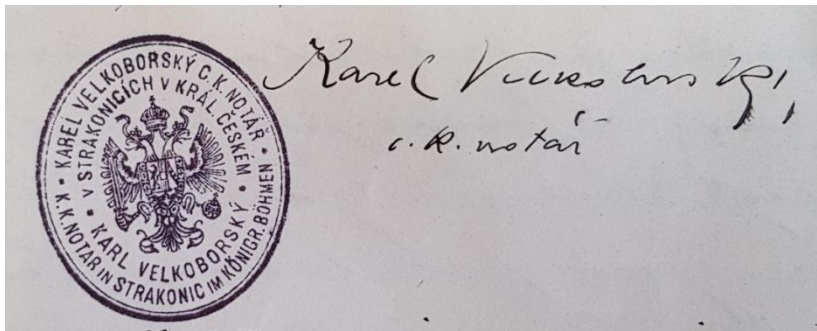 KAREL VELKOBORSKÝ C. K. NOTÁŘ
V STRAKONICÍCH V KRÁL. ČESKÉM
KARL VELKOBORSKÝ
K. K. NOTAR IN STRAKONIC IM KÖNIGR. BÖHMEN
Karel Velkoborský,
c. k. notář